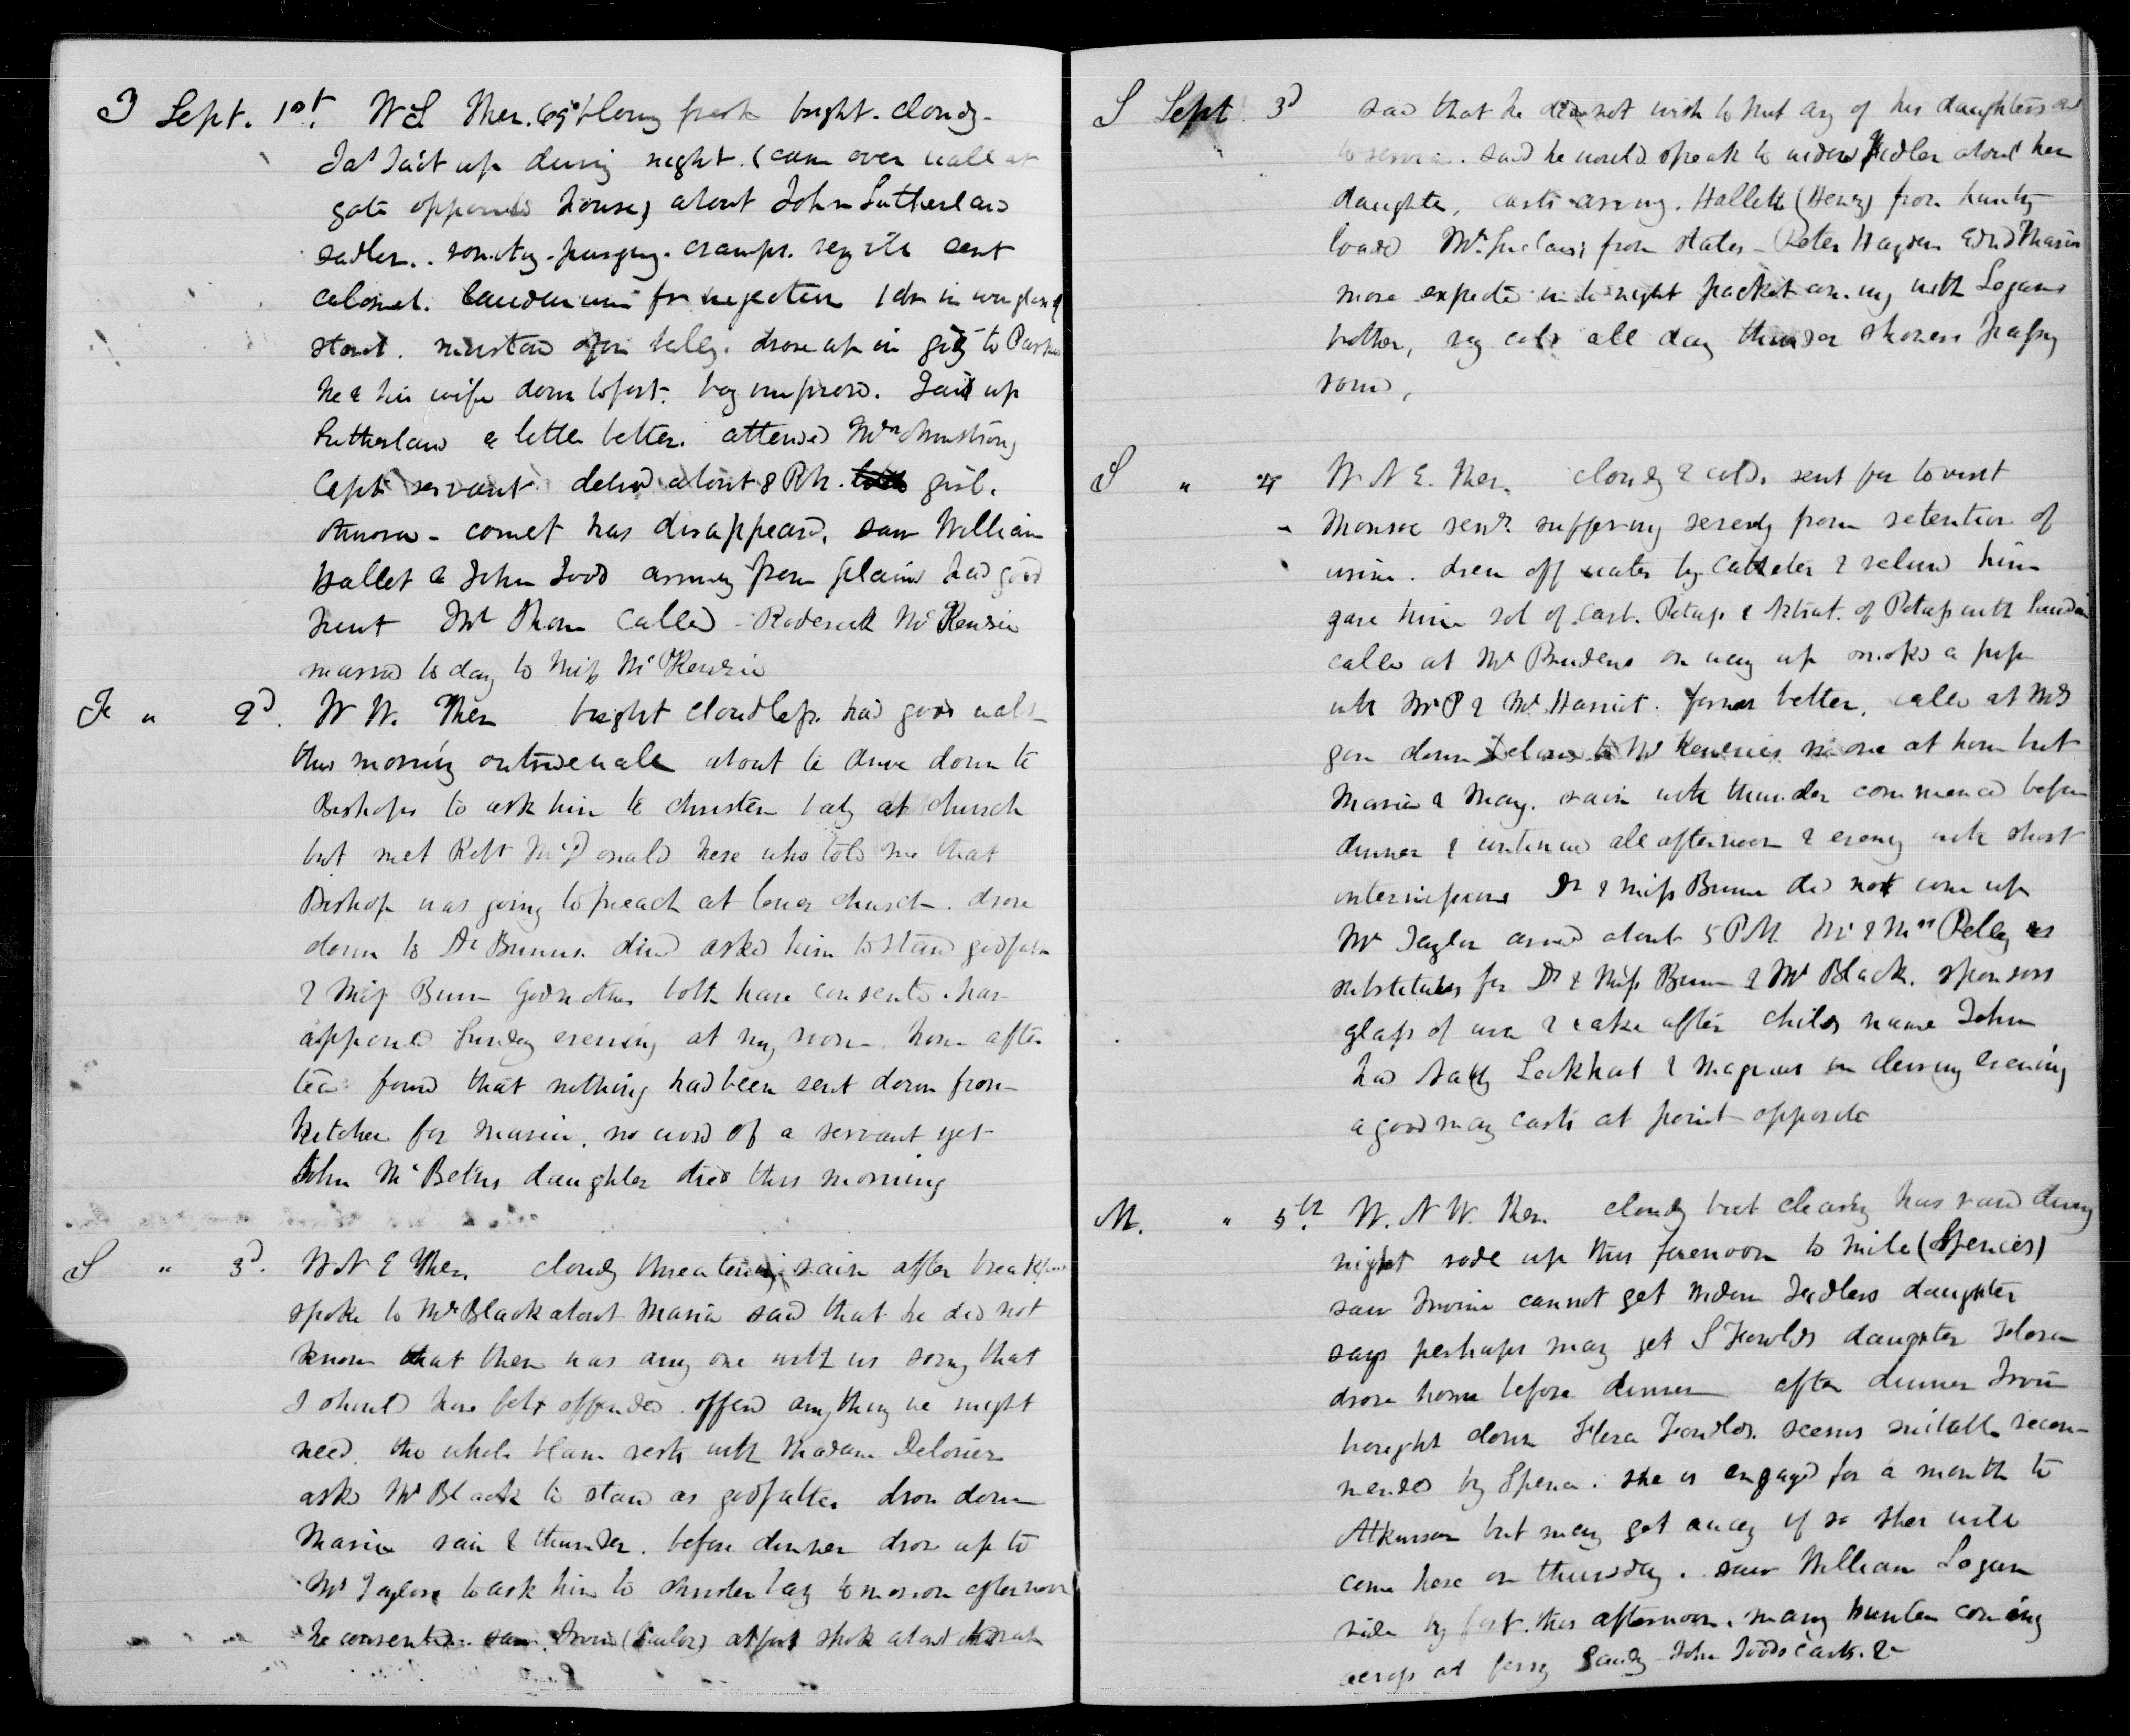 T Sept. 1st. W S Ther. 69° blowing fresh bright. cloudy-
Jas Tait up during night. (came over wall at
gate opposite house) about John Sutherland
sadler.. vomiting. purging. cramps. very ill sent
calomel. laudanum for injection 1 dr in wineglass of
starch. mustard for belly. drove up in gig to
he & his wife down to fort. boy improved. Tait up
Sutherland a little better. attended Mrs Armstrong
Capt servant deliv'd about 8 P.M. girl.
Aurora - comet has disappeared. saw William
Hallet & John Todd arriving from plains had good
hunt Mr Thom called - Roderick McKenzie
married to day to Miss McKenzie
F " 2d. W W. Ther bright cloudless. had good walk
this morning outside walls about to drive down to
Bishops to ask him to christen baby at church
but met Robt McDonald here who told me that
Bishop was going to preach at lower church. drove
down to Dr Bunns. dined asked him to stand godfather
& Miss Bunn Godmother both have consented. have
appointed Sunday evening at my room. home after
tea found that nothing had been sent down from
kitchen for Maria. no word of a servant yet
John McBeths daughter died this morning
S " 3d. W N E Ther. cloudy threatening rain after breakfast
spoke to Mr Black about Maria said that he did not
know that there was any one with us sorry that
I should have felt offended. offered anything we might
need. the whole blame rests with Madam Delorier
asked Mr Black to stand as godfather drove down
Maria rain & thunder. before dinner drove up to
Mr Taylors to ask him to christen baby tomorrow afternoon
he consented. saw Irvine (Tailor) at fort spoke about
S Sept 3d said that he did not wish to put any of his daughters out
to service. said he would speak to widow about her
daughter, carts arriving. Hallett (Henry) from hunting
loaded Mr from States - Peter Hayden
more expected in to night packet coming with Logans
brother, very cold all day thunder showers passing
round,
S " 4 W N E. Ther. cloudy & cold. sent for to visit
Monroe senr. suffering severely from retention of
urine. drew off water by Catheter & relieved him
gave him sol of Carb. Potass & Nitrat. of Potass with
called at Mr Prudens on way up smoked a pipe
with Mr P & Mr Harriot. former better. called at
gone down McKenzies no one at home but
Maria & Mary. rain with thunder commenced before
dinner & continued all afternoon & evening with short
intermissions Dr & Miss Bunn did not come up
Mr Taylor arrived about 5 P.M. Mr & Mrs Pelly as
substitutes for Dr & Miss Bunn & Mr Black. sponsors
glass of wine & cake after child's name John
had Lockhart & Magnus in during evening
a good many carts at point opposite
M. " 5th. W. N W. Ther. cloudy but clearing has rained during
night rode up this forenoon to mile (Spences)
saw Irvine cannot get Widow daughter
says perhaps may get S Fowlds daughter Flora
drove home before dinner after dinner Irvine
brought down Flora Fowlds. seems suitable recom-
mended by Spence. she is engaged for a month to
Atkinson but may get away if so she will
come here on Thursday. saw William Logan
ride by fort this afternoon. many hunters coming
across at ferry Sandy - John Todds carts. &